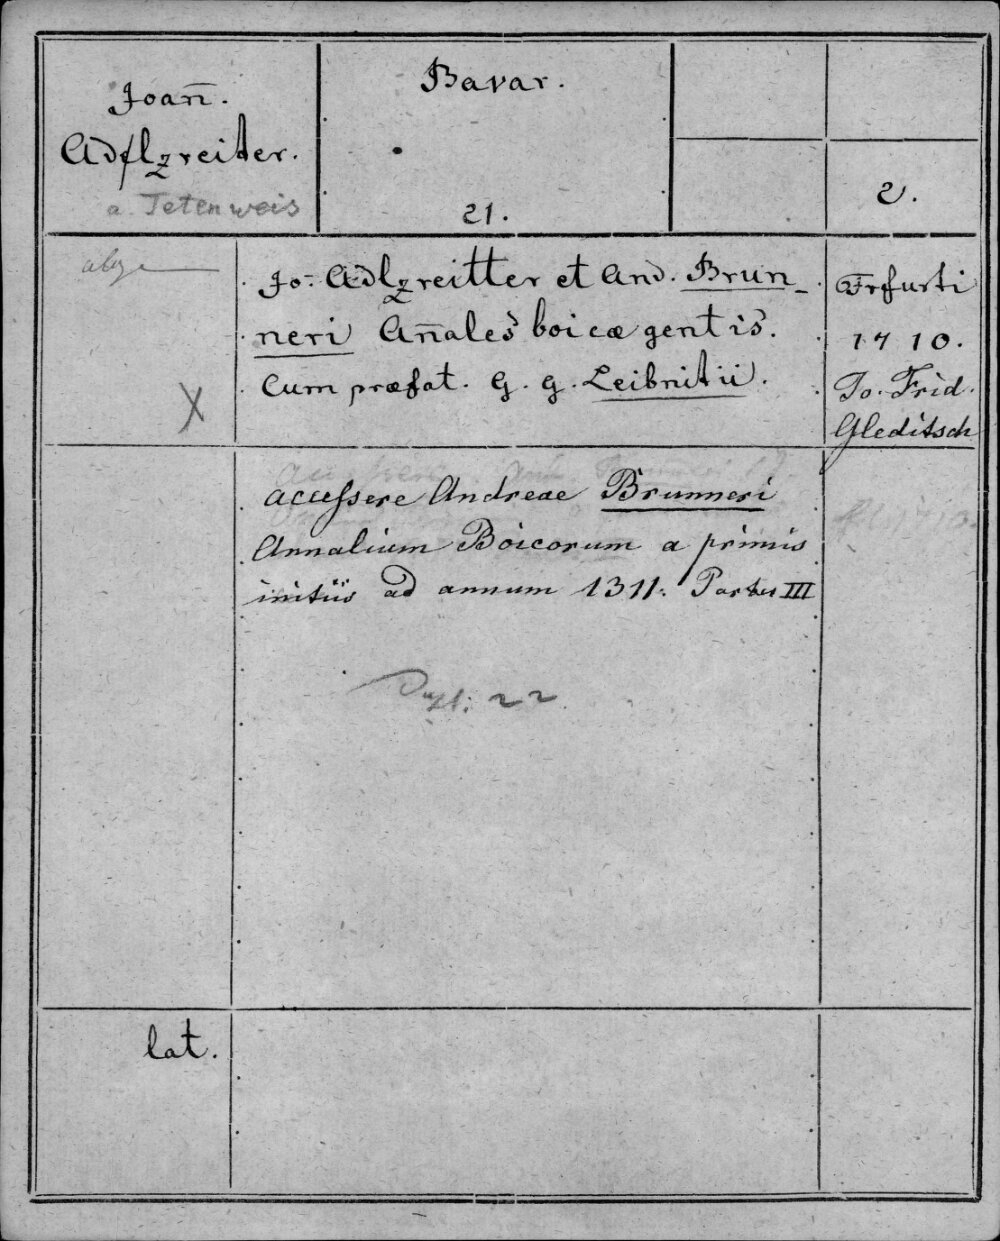 Joan̄.
Adflzreiter.
a. Tetenweis
Bavar.
21.
2.
Jo: Adlzreitter et And. Brun_
neri An̄ales boicæ gentis.
Cum præfat. G. G. Leibnitii.
Frfurti
1710.
Jo. Frid.
Gleditsch
X
accessere Andreae Brunneri
Annalium Boicorum a primis
initiis ad annum 1311. Partes III
Dupl. 22
lat.